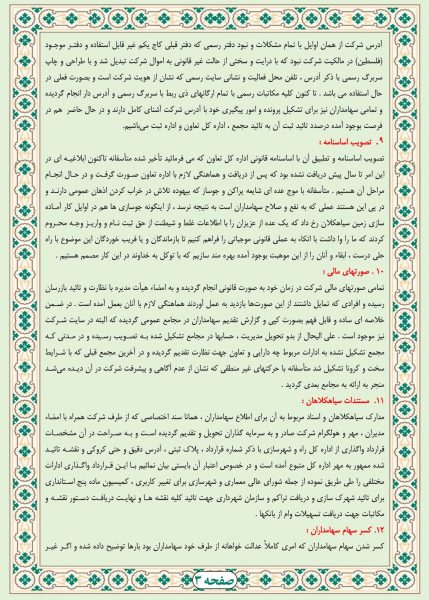 آدرس شرکت از همان اوایل با تمام مشکلات و نبود دفتر رسمی که دفتر قبلی کاج یکم غیر قابل استفاده و دفتر موجود
(فلسطین) در مالکیت شرکت نبود که با درایت و سختی از حالت غیر قانونی به اموال شرکت تبدیل شد و با طراحی و چاپ
سربرگ رسمی با ذکر آدرس ، تلفن محل فعالیت و نشانی سایت رسمی که نشان از هویت شرکت است و بصورت فعلی در
حال استفاده می باشد . تا کنون کلیه مکاتبات رسمی با تمام ارگانهای ذی ربط با سربرگ رسمی و آدرس دار انجام گردیده
و تمامی سهامداران نیز برای تشکیل پرونده و امور پیگیری خود با آدرس شرکت آشنای کامل دارند و در حال حاضر هم در
فرصت بوجود آمده درصدد تائید ثبت آن به تائید مجمع ، اداره کل تعاون و اداره ثبت می‌باشیم.
۹. تصویب اساسنامه :
تصویب اساسنامه و تطبیق آن با اساسنامه قانونی اداره کل تعاون که می فرمائید تأخیر شده متأسفانه تاکنون ابلاغیه ای در
این امر تا سال پیش دریافت نشده بود که پس از دریافت و هماهنگی لازم با اداره تعاون صورت گرفت و در حال انجام
مراحل آن هستیم . متأسفانه با موج عده ای شایعه پراکن و جوساز که بیهوده تلاش در خراب کردن اذهان عمومی دارند و
در پی این هستند عملی که به نفع و صلاح سهامداران است به نتیجه نرسد ، از اینگونه جوسازی ها هم در اوایل کار آماده
سازی زمین سیاهکلان رخ داد که یک عده از عزیزان را با اطلاعات غلط و شیطنت از حق ثبت نام و واریز وجه محروم
کردند که ما را وا داشت با اتکاء به عملی قانونی موجباتی را فراهم کنیم تا بازماندگان و یا فریب خوردگان این موضوع با راه
حلی درست ، ابقاء و آنان را از این موهبت بوجود آمده بهره مند سازیم که با توکل به خداوند در این کار مصمم هستیم .
۱۰. صورتهای مالی :
تمامی صورتهای مالی شرکت در زمان خود به صورت قانونی انجام گردیده و به امضاء هیأت مدیره با نظارت و تائید بازرسان
رسیده و افرادی که تمایل داشتند از این صورت‌ها بازدید به عمل آوردند هماهنگی لازم با آنان بعمل آمده است . در ضمن
خلاصه ای ساده و قابل فهم بصورت کپی و گزارش تقدیم سهامداران در مجامع عمومی گردیده که البته در سایت شرکت
نیز موجود است . علی الیحال از بدو تحویل مدیریت ، حسابها در مجامع تشکیل شده به تصویب رسیده و در مدتی که
مجمع تشکیل نشده به ادارات مربوط چه دارایی و تعاون جهت نظارت تقدیم گردیده و در آخرین مجمع قبلی که با شرایط
سخت و کرونا تشکیل شد متأسفانه با حرکتهای غیر منطقی که نشان از عدم آگاهی و پیشرفت شرکت در آن دیده می‌شد
منجر به ارائه به مجامع بعدی گردید .
۱۱. مستندات سیاهکلاهان :
مدارک سیاهکلاهان و اسناد مربوط به آن برای اطلاع سهامداران ، همانا سند اختصاصی که از طرف شرکت همراه با امضاء
مدیران ، مهر و هولگرام شرکت صادر و به سرمایه گذاران تحویل و تقدیم گردیده است و به صراحت در آن مشخصات
قرارداد واگذاری از اداره کل راه و شهرسازی با ذکر شماره قرارداد ، پلاک ثبتی ، آدرس دقیق و حتی کروکی و نقشه تائید
شده ممهور به مهر اداره کل متبوع آمده است و در خصوص اعتبار آن بایستی بیان نمائیم با این قرارداد واگذاری ادارات
مختلفی را طی طریق نموده از جمله شورای عالی معماری و شهرسازی برای تغییر کاربری ، کمیسیون ماده پنج استانداری
برای تائید شهرک سازی و دریافت تراکم و سازمان شهرداری جهت تائید کلیه نقشه ها و نهایت دریافت دستور نقشه و
مکاتبات جهت دریافت تسهیلات وام از بانکها .
۱۲. کسر سهام سهامداران :
کسر شدن سهام سهامداران که امری کاملاً عدالت خواهانه از طرف خود سهامداران بود بارها توضیح داده شده و اگر غیر
صفحه ۳